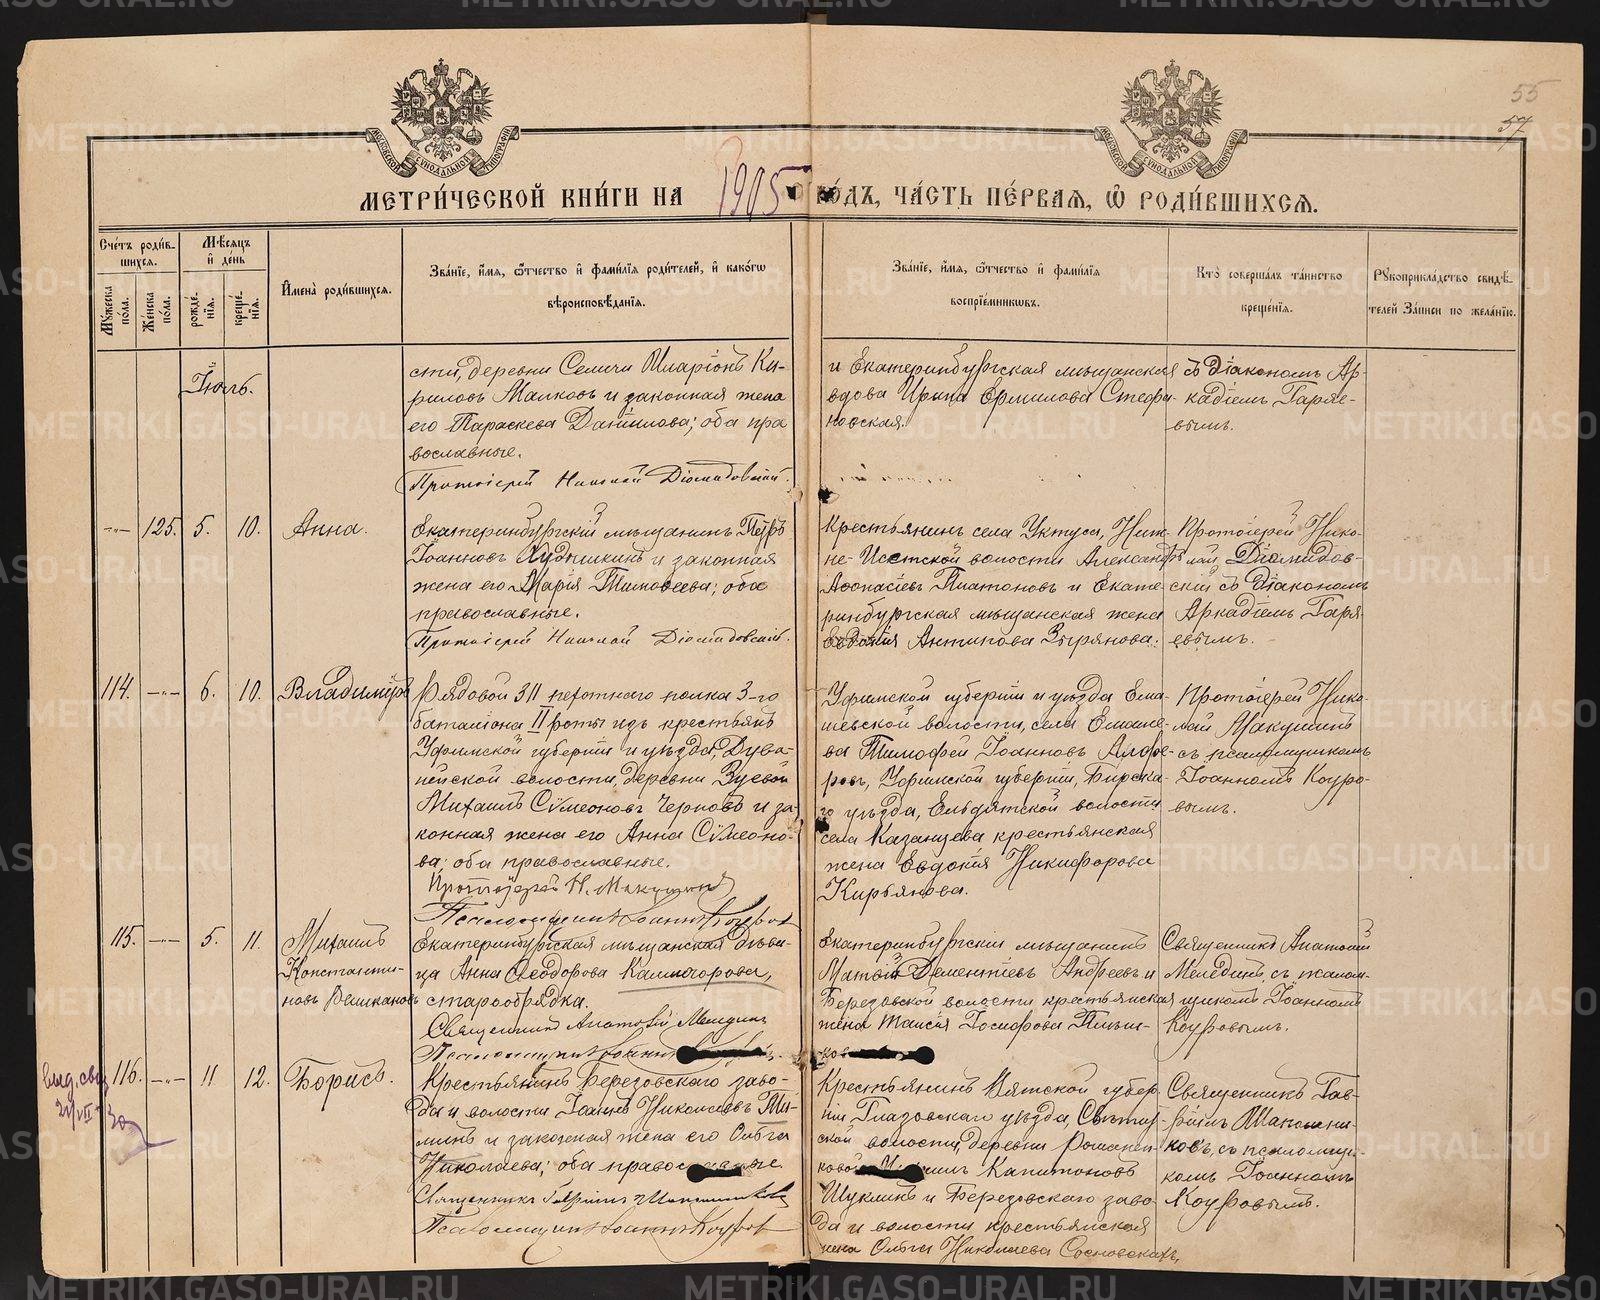 55
57
МОСКОВСКОЙ СѴНОДАЛЬНОЙ ТИПОГРАФІИ
МОСКОВСКОЙ СѴНОДАЛЬНОЙ ТИПОГРАФІИ
МЕТРИ́ЧЕСКОЙ КНИ́ГИ НА 1905 ГО́ДЪ, ЧА́СТЬ ПЕ́РВАЯ, Ѽ РОДИ́ВШИХСЯ.
Сче́тъ роди́в-
шихся.
Мꙋ́жеска по́ла.
Же́нска по́ла.
Мѣ́сяцъ и҆ де́нь
рожде́-
нїѧ.
креще́-
нїѧ.
И҆мена̀ роди́вшихся.
Зва́нїе, и҆́мѧ, ѻ҆́тчество и҆ фами́лїѧ роди́телей, и҆ како́гѡ
вѣроисповѣ́данїѧ.
Зва́нїе, и҆́мѧ, ѻ҆́тчество и҆ фами́лїѧ
воспрїе́мникѡвъ.
Кто̀ соверша́лъ та́инство
креще́нїѧ.
Рꙋкоприкла́дство свидѣ́-
телей за́писи по жела́нїю.
Іюль.
сти, деревни Семичи Иларіонъ Ки-
риловъ Малковъ и законная жена
его Параскева Даніилова; оба пра
вославные.
Протоіерей Николай Діомидовскій.
и Екатеринбургская мѣщанская
вдова Ирина Ермилова Стефа-
новская.
съ Діакономъ Ар
кадіемъ Гаряе-
вымъ.
-"- 125. 5. 10. Анна.
Екатеринбургскій мѣщанинъ Петръ
Іоанновъ и законная
жена его Марія Тимоѳеева; оба
православные.
Протоіерей Николай Діомидовскій.
Крестьянинъ села Уктуса, Ниж-
не-Исетской волости Александръ
Аѳанасіевъ Платоновъ и Екате-
ринбургская мѣщанская жена
Евдокія Антипова Зырянова.
Протоіерей Нико-
лай Діомидов-
скій съ Діакономъ
Аркадіемъ Гаря
евымъ.
114. -"- 6. 10. Владиміръ
Рядовой 311 пехотнаго полка 3-го
баталіона II роты изъ крестьянъ
Уфимской губерніи и уѣзда, Дува-
нейской волости, деревни Зуевой
Михаилъ Сѵмеоновъ Черновъ и за-
конная жена его Анна Сѵмеоно-
ва; оба православные.
Протоіерей Н. Макушинъ
Псаломщикъ Іоаннъ Коуровъ
Уфимской губерніи и уѣзда
волости, села
ва Тимофей Іоанновъ Алфе-
ровъ, Уфимской губерніи, Бирска-
го уѣзда, волости
села Казанцева крестьянская
жена Евдокія Никифорова
Кирьянова.
Протоіерей Нико-
лай Макушинъ
съ псаломщикомъ
Іоанномъ Коуро-
вымъ.
115. -"- 5. 11. Михаилъ
Константи-
новъ Великановъ
Екатеринбургская мѣщанская дѣви-
ца Анна Ѳеодорова Камногорова,
старообрядка.
Священникъ Анатолій Мелединъ
Псаломщикъ Іоаннъ
Екатеринбургскій мѣщанинъ
Матѳій Дементіевъ Андреевъ и
Березовской волости крестьянская
жена Таисія Іосифова Плѣш-
ков
Священникъ Анатолій
Мелединъ, съ псалом-
щикомъ Іоанномъ
Коуровымъ.
выд. свид.
116. -"- 11 12. Борисъ.
Крестьянинъ Березовскаго заво-
да и волости Іоаннъ Николаевъ Ти-
минъ и законная жена его Ольга
Николаева; оба православные
Священникъ Гавріилъ Шапошниковъ
Псаломщикъ Іоаннъ Коуровъ
Крестьянинъ Вятской губер
ніи Глазовскаго уѣзда,
ской волости, деревни
Капитоновъ
Шуклинъ и Березовскаго заво-
да и волости крестьянская
жена Ольга Николаева Сосновскахъ.
Священникъ Гав-
ріилъ Шапошни-
ковъ, съ псаломщи-
комъ Іоанномъ
Коуровымъ.
METRIKI.GASO-URAL.RU